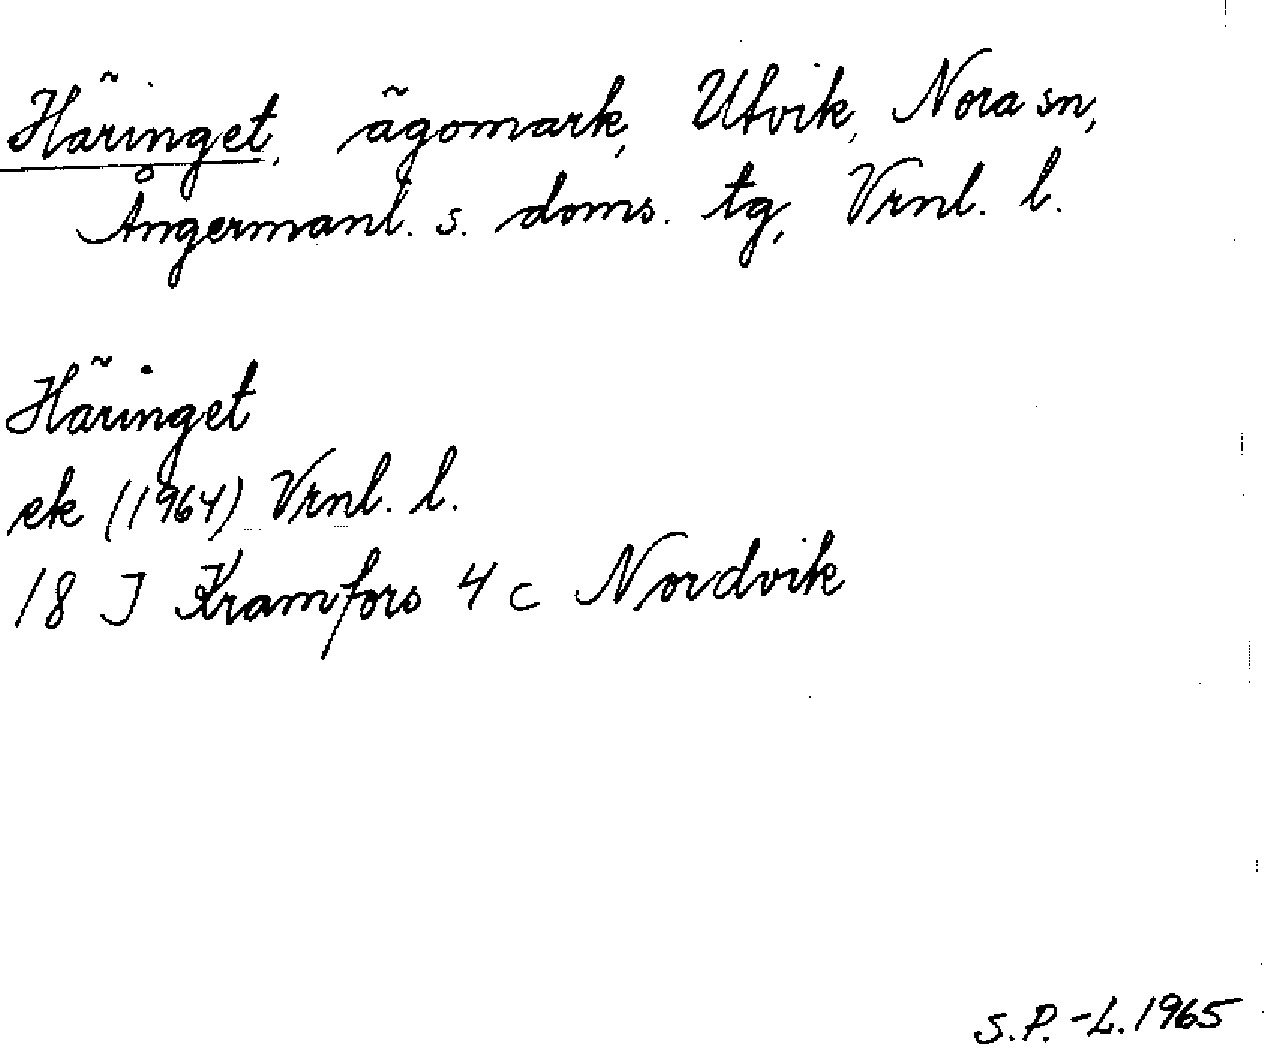 Häringet, ägomark, Utvik, Nora sn,
Ångermanl. s. doms. tg, Vrnl. l.
Häringet
ek (1964) Vrnl. l.
18 J Kramfors 4 c Nordvik
S.P.-L. 1965